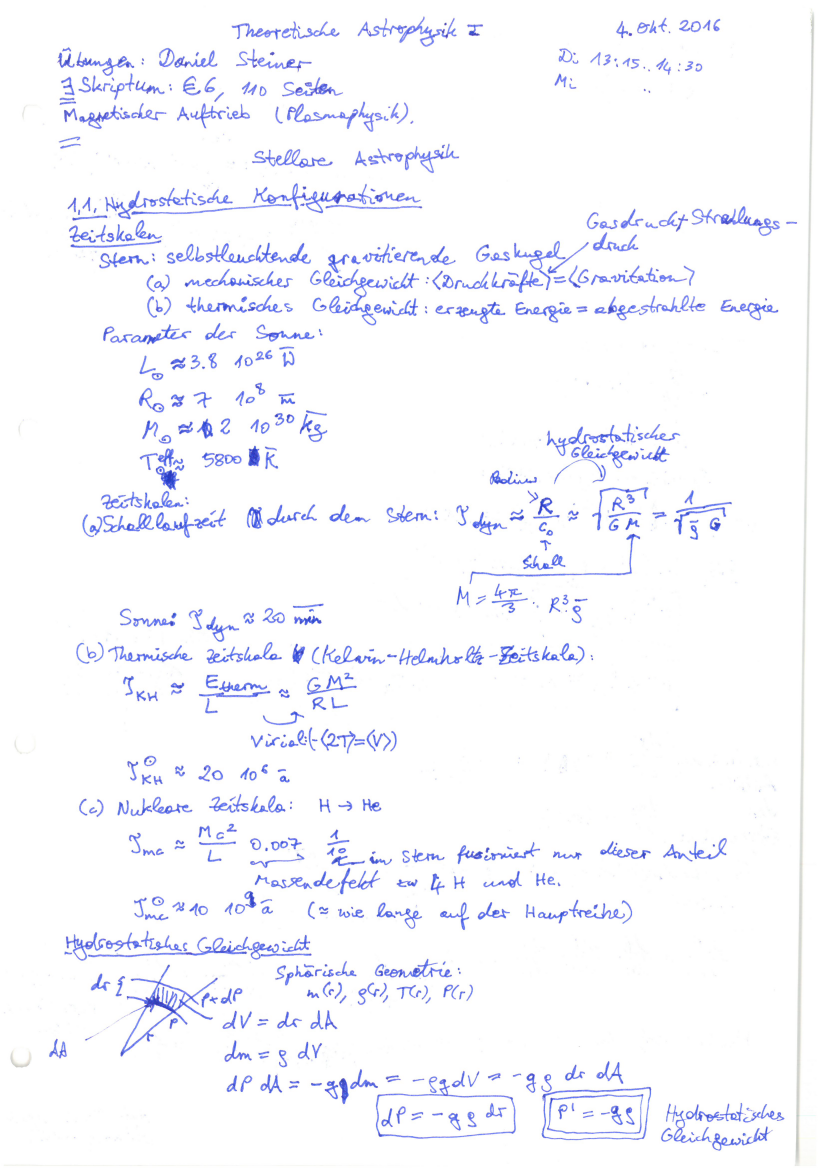 Theoretische Astrophysik I
4. Okt. 2016
Übungen: Daniel Steiner
Di 13:15..14:30
∃ Skriptum: €6, 110 Seiten
Mi ..
Magnetischer Auftrieb (Plasmaphysik).
Stellare Astrophysik
1.1. Hydrostatische Konfigurationen
Gasdruck + Strahlungs-
druck
Zeitskalen
Stern: selbstleuchtende gravitierende Gaskugel
(a) mechanisches Gleichgewicht: ⟨Druckkräfte⟩=⟨Gravitation⟩
(b) thermisches Gleichgewicht: erzeugte Energie = abgestrahlte Energie
Parameter der Sonne:
L⊙ ≈ 3.8 10^26 W
R⊙ ≈ 7 10^8 m
M⊙ ≈ 2 10^30 kg
T⊙^eff ≈ 5800 K
hydrostatischer
Gleichgewicht
Radius
Zeitskalen:
(a) Schalllaufzeit durch den Stern: τ_dyn ≈ R/c₀ ≈ √(R³/(G M)) = 1/√(ρ̄ G)
Schall
M = 4π/3 · R³ ρ̄
Sonne: τ_dyn ≈ 20 min
(b) Thermische Zeitskala (Kelvin-Helmholtz-Zeitskala):
τ_KH ≈ E_therm/L ≈ GM²/(RL)
Virial: (-⟨2T⟩=⟨V⟩)
τ_KH^⊙ ≈ 20 10^6 a
(c) Nukleare Zeitskala: H → He
τ_nuc ≈ Mc²/L 0.007 1/10 im Stern fusioniert nur dieser Anteil
Massendefekt zw 4 H und He.
τ_nuc^⊙ ≈ 10 10^9 a (≈ wie lange auf der Hauptreihe)
Hydrostatisches Gleichgewicht
Sphärische Geometrie:
m(r), ρ(r), T(r), P(r)
dr
P+dP
P
r
dA
dV = dr dA
dm = ρ dV
dP dA = -g dm = -ρg dV = -gρ dr dA
dP = -gρ dr
P' = -gρ
Hydrostatisches
Gleichgewicht